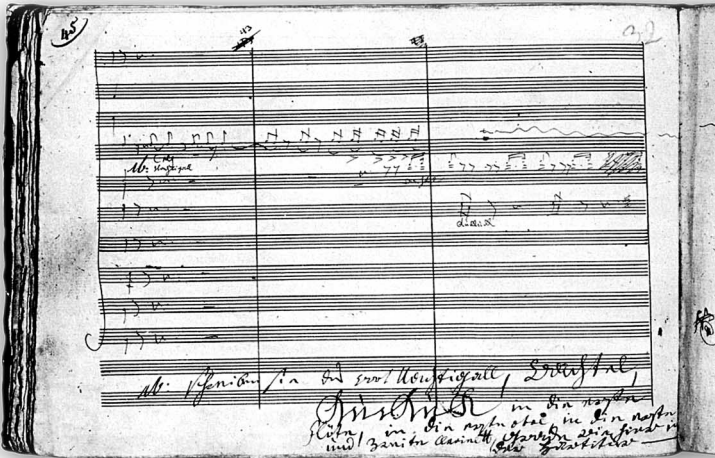 45
32
Nb:
Nachtigall
Nb: schreiben sie das wort Nachtigall, Wachtel,
Kukuk in die erste
Flöte, in die erste oboe, in die erste
und zweite Clarinett, gerade wie hier in
der Partitur